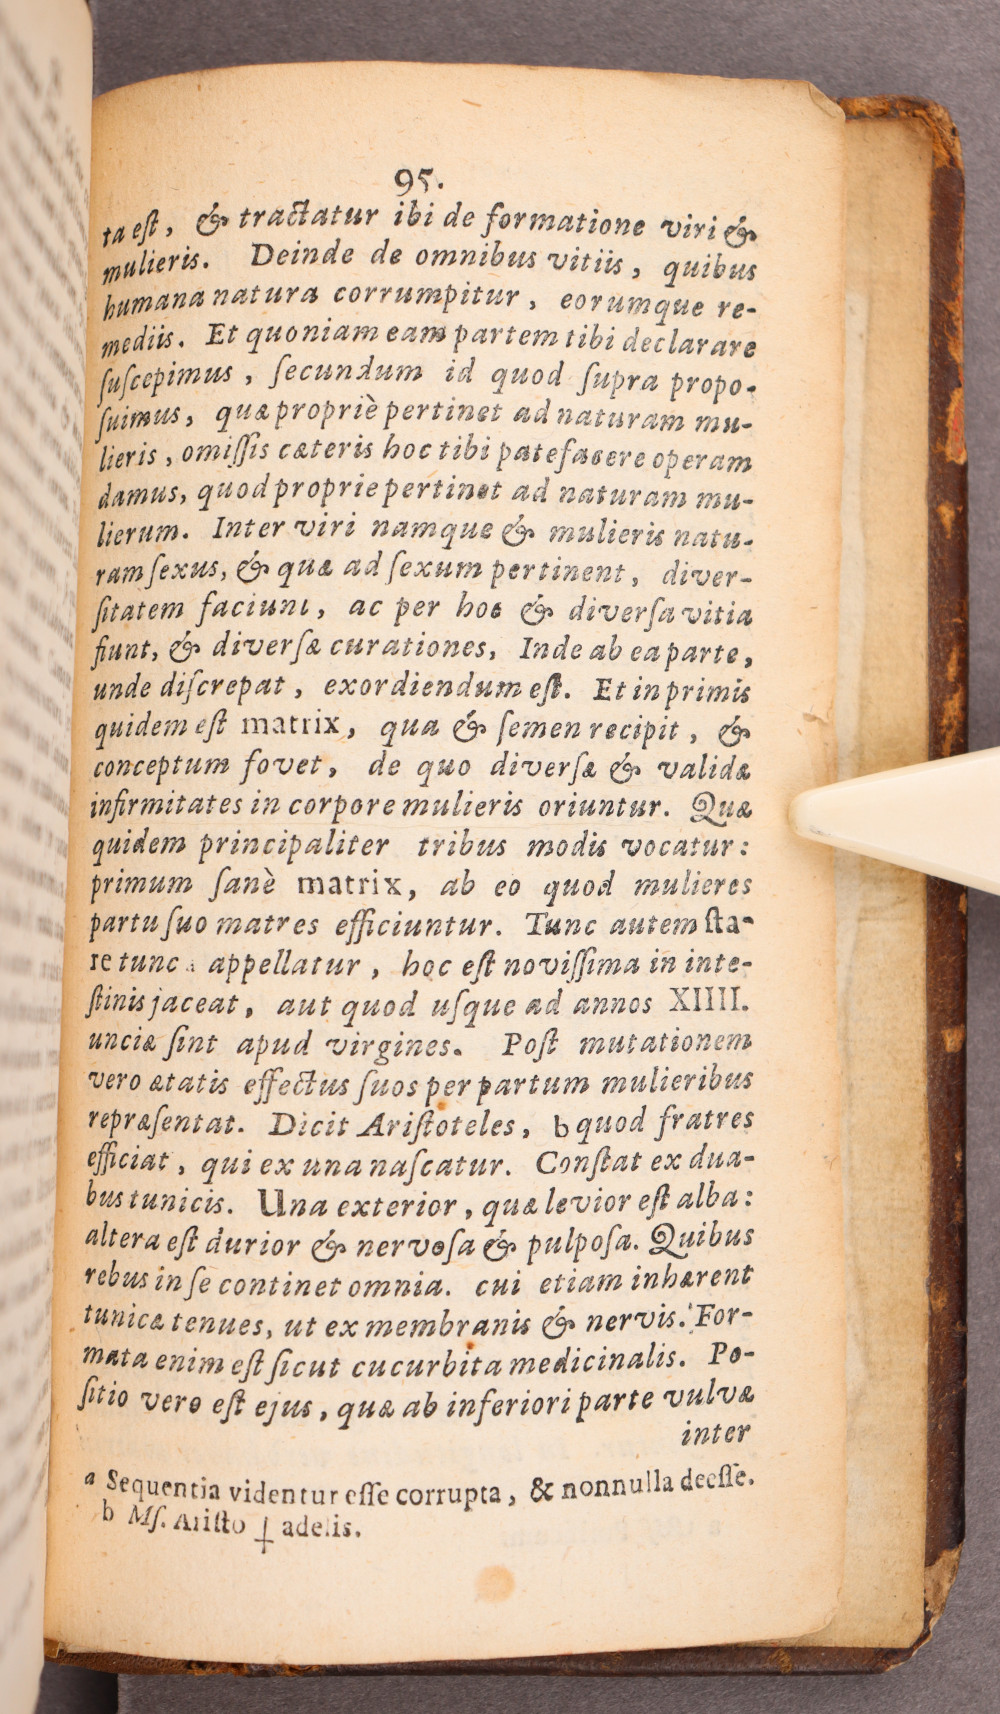 95.
ta eſt, & tractatur ibi de formatione viri &
mulieris. Deinde de omnibus vitiis, quibus
humana natura corrumpitur, eorumque re-
mediis. Et quoniam eam partem tibi declarare
ſuſcepimus, ſecundum id quod ſupra propo-
ſuimus, quæ propriè pertinet ad naturam mu-
lieris, omiſſis cæteris hoc tibi patefacere operam
damus, quod proprie pertinet ad naturam mu-
lierum. Inter viri namque & mulieris natu-
ram ſexus, & quæ ad ſexum pertinent, diver-
ſitatem faciunt, ac per hoc & diverſa vitia
fiunt, & diverſæ curationes, Inde ab ea parte,
unde diſcrepat, exordiendum eſt. Et in primis
quidem eſt matrix, qua & ſemen recipit, &
conceptum fovet, de quo diverſæ & validæ
infirmitates in corpore mulieris oriuntur. Quæ
quidem principaliter tribus modis vocatur:
primum ſanè matrix, ab eo quod mulieres
partu ſuo matres efficiuntur. Tunc autem ſta-
re tunc a appellatur, hoc eſt noviſſima in inte-
ſtinis jaceat, aut quod uſque ad annos XIIII.
unciæ ſint apud virgines. Poſt mutationem
vero ætatis effectus ſuos per partum mulieribus
repræſentat. Dicit Ariſtoteles, b quod fratres
efficiat, qui ex una naſcatur. Conſtat ex dua-
bus tunicis. Una exterior, quæ levior eſt alba:
altera eſt durior & nervoſa & pulpoſa. Quibus
rebus in ſe continet omnia. cui etiam inhærent
tunicæ tenues, ut ex membranis & nervis. For-
mata enim eſt ſicut cucurbita medicinalis. Po-
ſitio vero eſt ejus, quæ ab inferiori parte vulvæ
inter
a Sequentia videntur eſſe corrupta, & nonnulla deeſſe.
b Mſ. Ariſto ⸸ adelis.